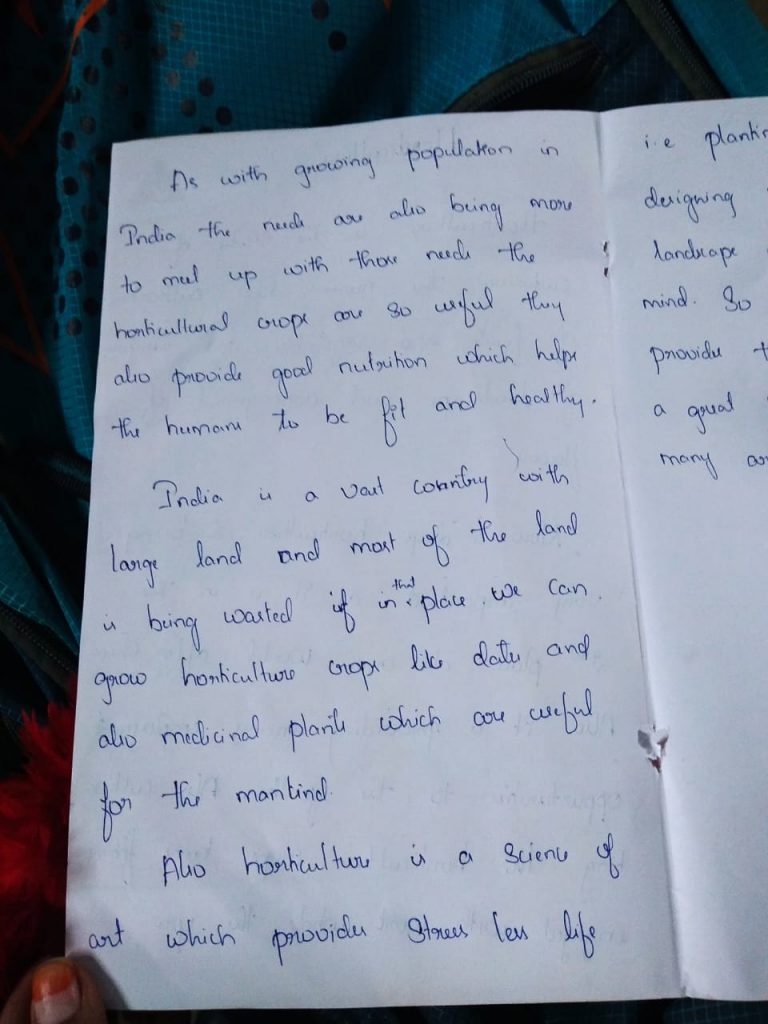 As with growing population in
India the needs are also being more
to meet up with those needs the
horticultural crops are so useful they
also provide good nutrition which helps
the humans to be fit and healthy.
India is a vast country with
large land and most of the land
is being wasted if in that place we can
grow horticulture crops like dates and
also medicinal plants which are useful
for the mankind.
Also horticulture is a science of
art which provides stress less life
i.e plantin
designing
landscape
mind. So
provides t
a great
many ar